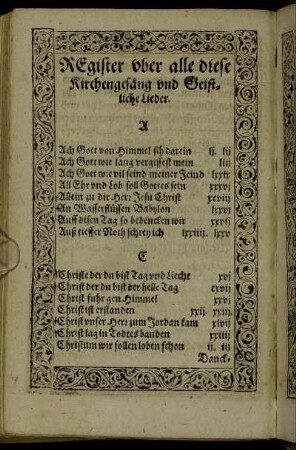 REgister vber alle diese
Kirchengesäng vnd Geist-
liche Lieder.
A
Ach Gott von Himmel sih darein ij. lij
Ach Gott wie lang vergissest mein liij
Ach Gott wie vil seind meiner Feind lxix
All Ehr vnd Lob soll Gottes sein xxxvj
Allein zu dir Herr Jesu Christ xcviij
An Wasserflüssen Babylon lxxvj
Auff disen Tag so bedencken wir xxvij
Auß tieffer Noth schrey ich lxxiiij. lxxv
C
Christe der du bist Tag vnd Liecht xvj
Christ der du bist der helle Tag cxvij
Christ fuhr gen Himmel xxvj
Christ ist erstanden xxij. xxiij
Christ vnser Herr zum Jordan kam xlvij
Christ lag in Todtes banden xxiij
Christum wir sollen loben schon ij. iij
Danck-